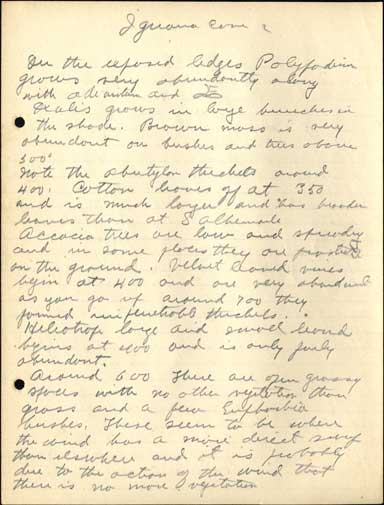 Iguana Cove 2
On the exposed ledges Polypodium
grows very abundantly along
with adiantum and
Oxalis grows in large bunches in
the shade. Brown moss is very
abundant on bushes and trees above
300'
Note the abutylon thickets around
400. Cotton leaves off at 350
and is much larger and has broader
leaves than at S Albemarle
Accacia trees are low and spreading
and in some places they are prostrate
on the ground. Velvet leaved vines
begin at 400 and are very abundant
as you go up around 700 they
formed impenetrable thickets.
Heliotrope large and small leaved
begins at 400 and is only fairly
abundant.
Around 600 there are open grassy
spaces with no other vegetation than
grass and a few Euphorbia
bushes. These seem to be where
the wind has a more direct sweep
than elsewhere and it is probably
due to the action of the wind that
there is no more vegetation